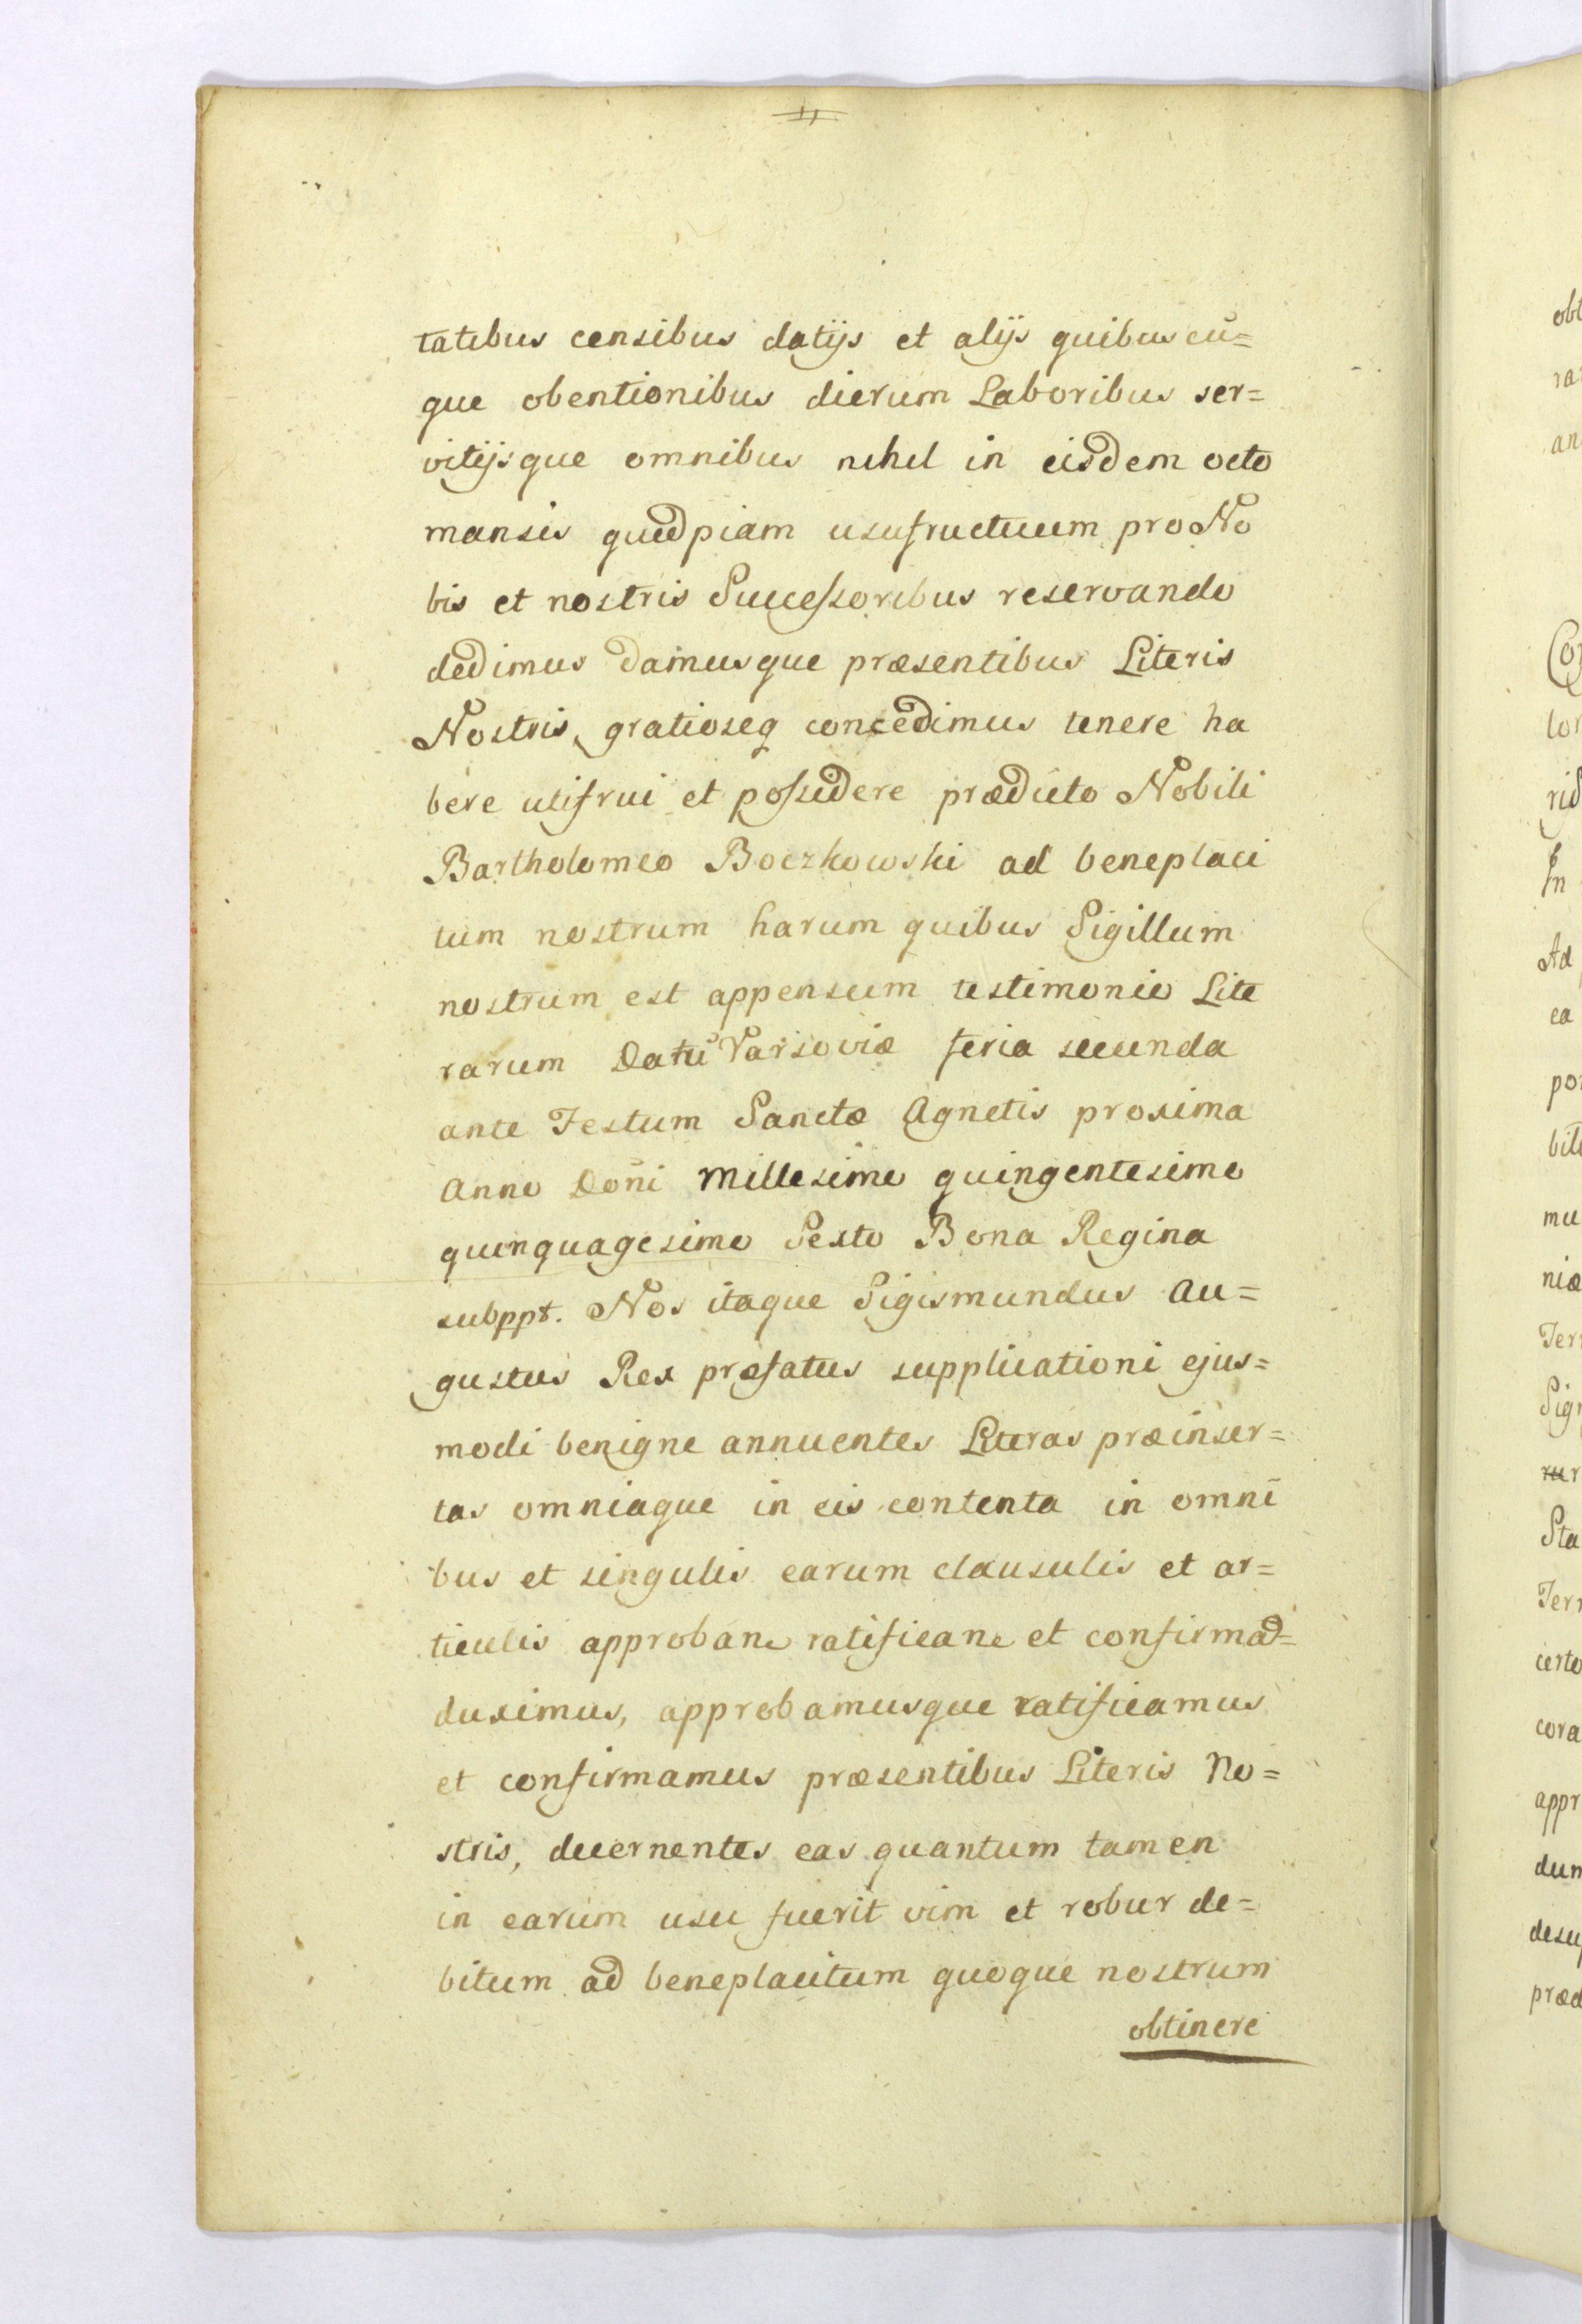 tatibus censibus datijs et alijs quibuscū=
que obentionibus dierum Laboribus ser=
vitijsque omnibus nihil in eisdem octo
mansis quidpiam usufructuum pro No
bis et nostris Successoribus reservando
dedimus damusque præsentibus Literis
Nostris, gratioseq concedimus tenere ha
bere utifrui et possidere prædicto Nobili
Bartholomeo Boczkowski ad beneplaci
tum nostrum harum quibus Sigillum
nostrum est appensum testimonio Lite
rarum Datū Varsoviæ feria secunda
ante Festum Sanctæ Agnetis proxima
Anno Doñi Millesimo quingentesimo
quinquagesimo Sexto Bona Regina
subppt. Nos itaque Sigismundus Au=
gustus Rex præfatus supplicationi ejus=
modi benigne annuentes Literas præinser=
tas omniaque in eis contenta in omnī
bus et singulis earum clausulis et ar=
ticulis approban ratifican et confirmad=
duximus, approbamusque ratificamus
et confirmamus præsentibus Literis No=
stris, decernentes eas quantum tamen
in earum usu fuerit vim et robur de=
bitum ad beneplacitum quoque nostrum
obtinere